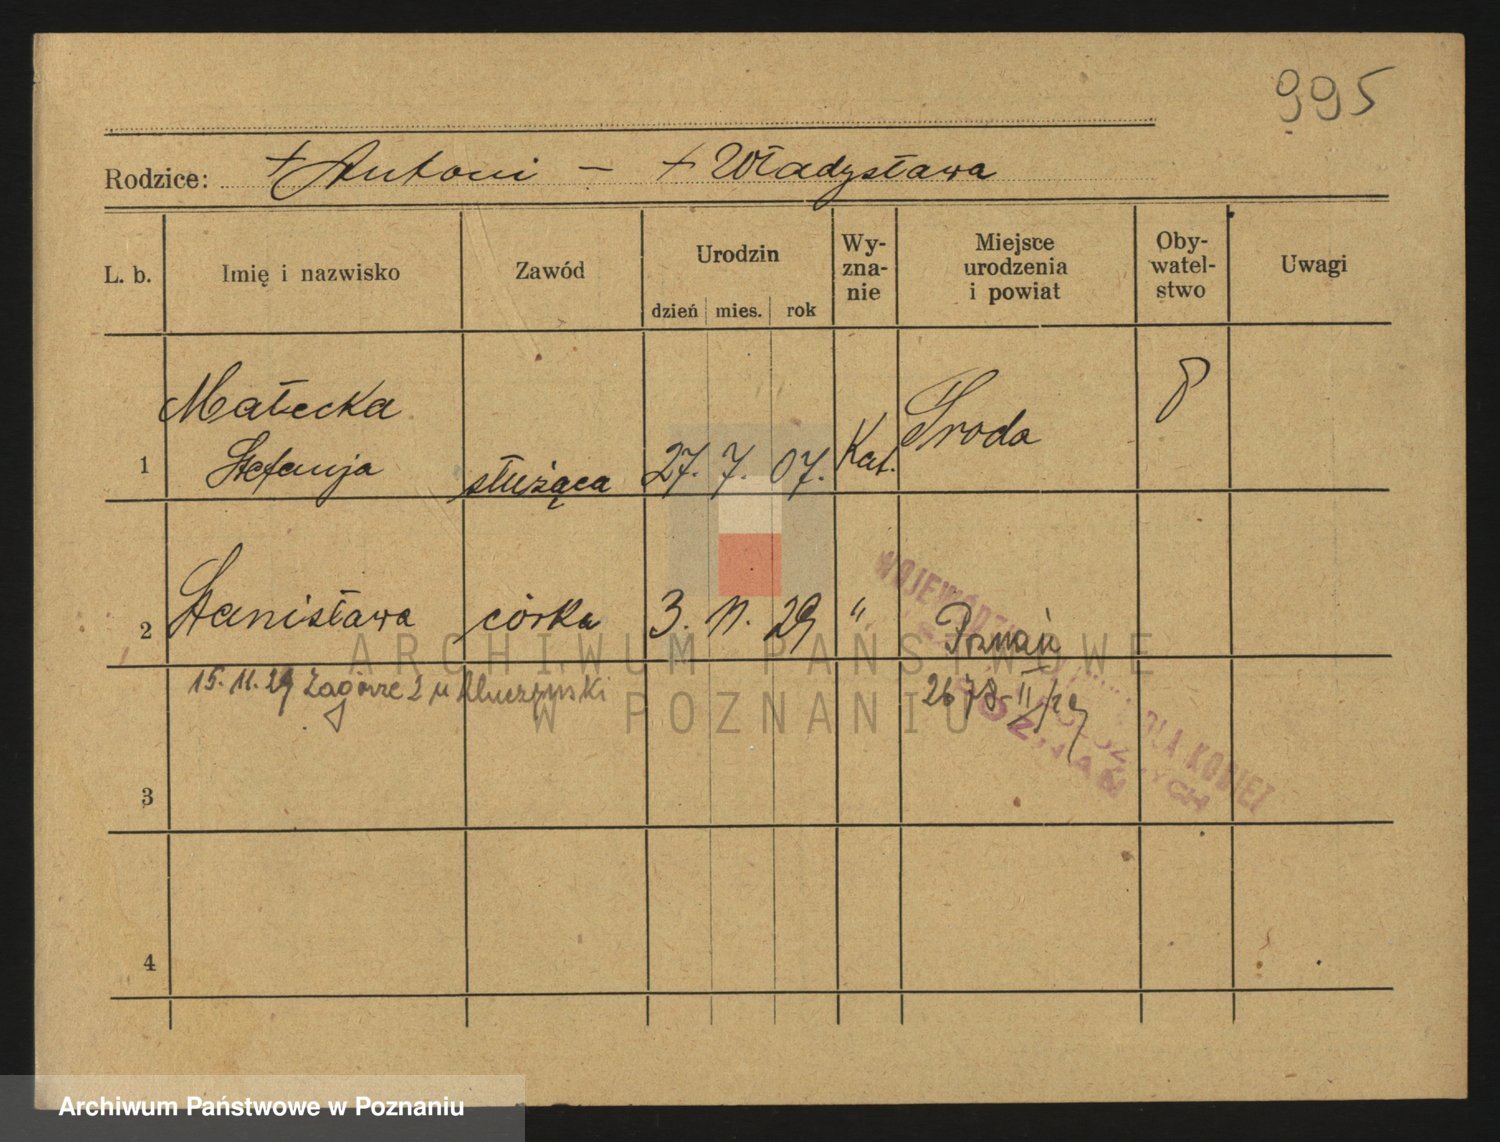 995
Rodzice: + Antoni – + Władysława
L. b. Imię i nazwisko Zawód Urodzin dzień mies. rok Wy-zna-nie Miejsce urodzenia i powiat Oby-watel-stwo Uwagi
Małecka
1 Stefanja służąca 27. 7. 07. Kat. Środa
2 Stanisława córka 3. 11. 29 " Poznań
15. 11. 29 Zagórze 2 u
2678-II/29
3
4
WOJEWÓDZKA
DLA KOBIET
POZNAŃ
ARCHIWUM PAŃSTWOWE
W POZNANIU
Archiwum Państwowe w Poznaniu